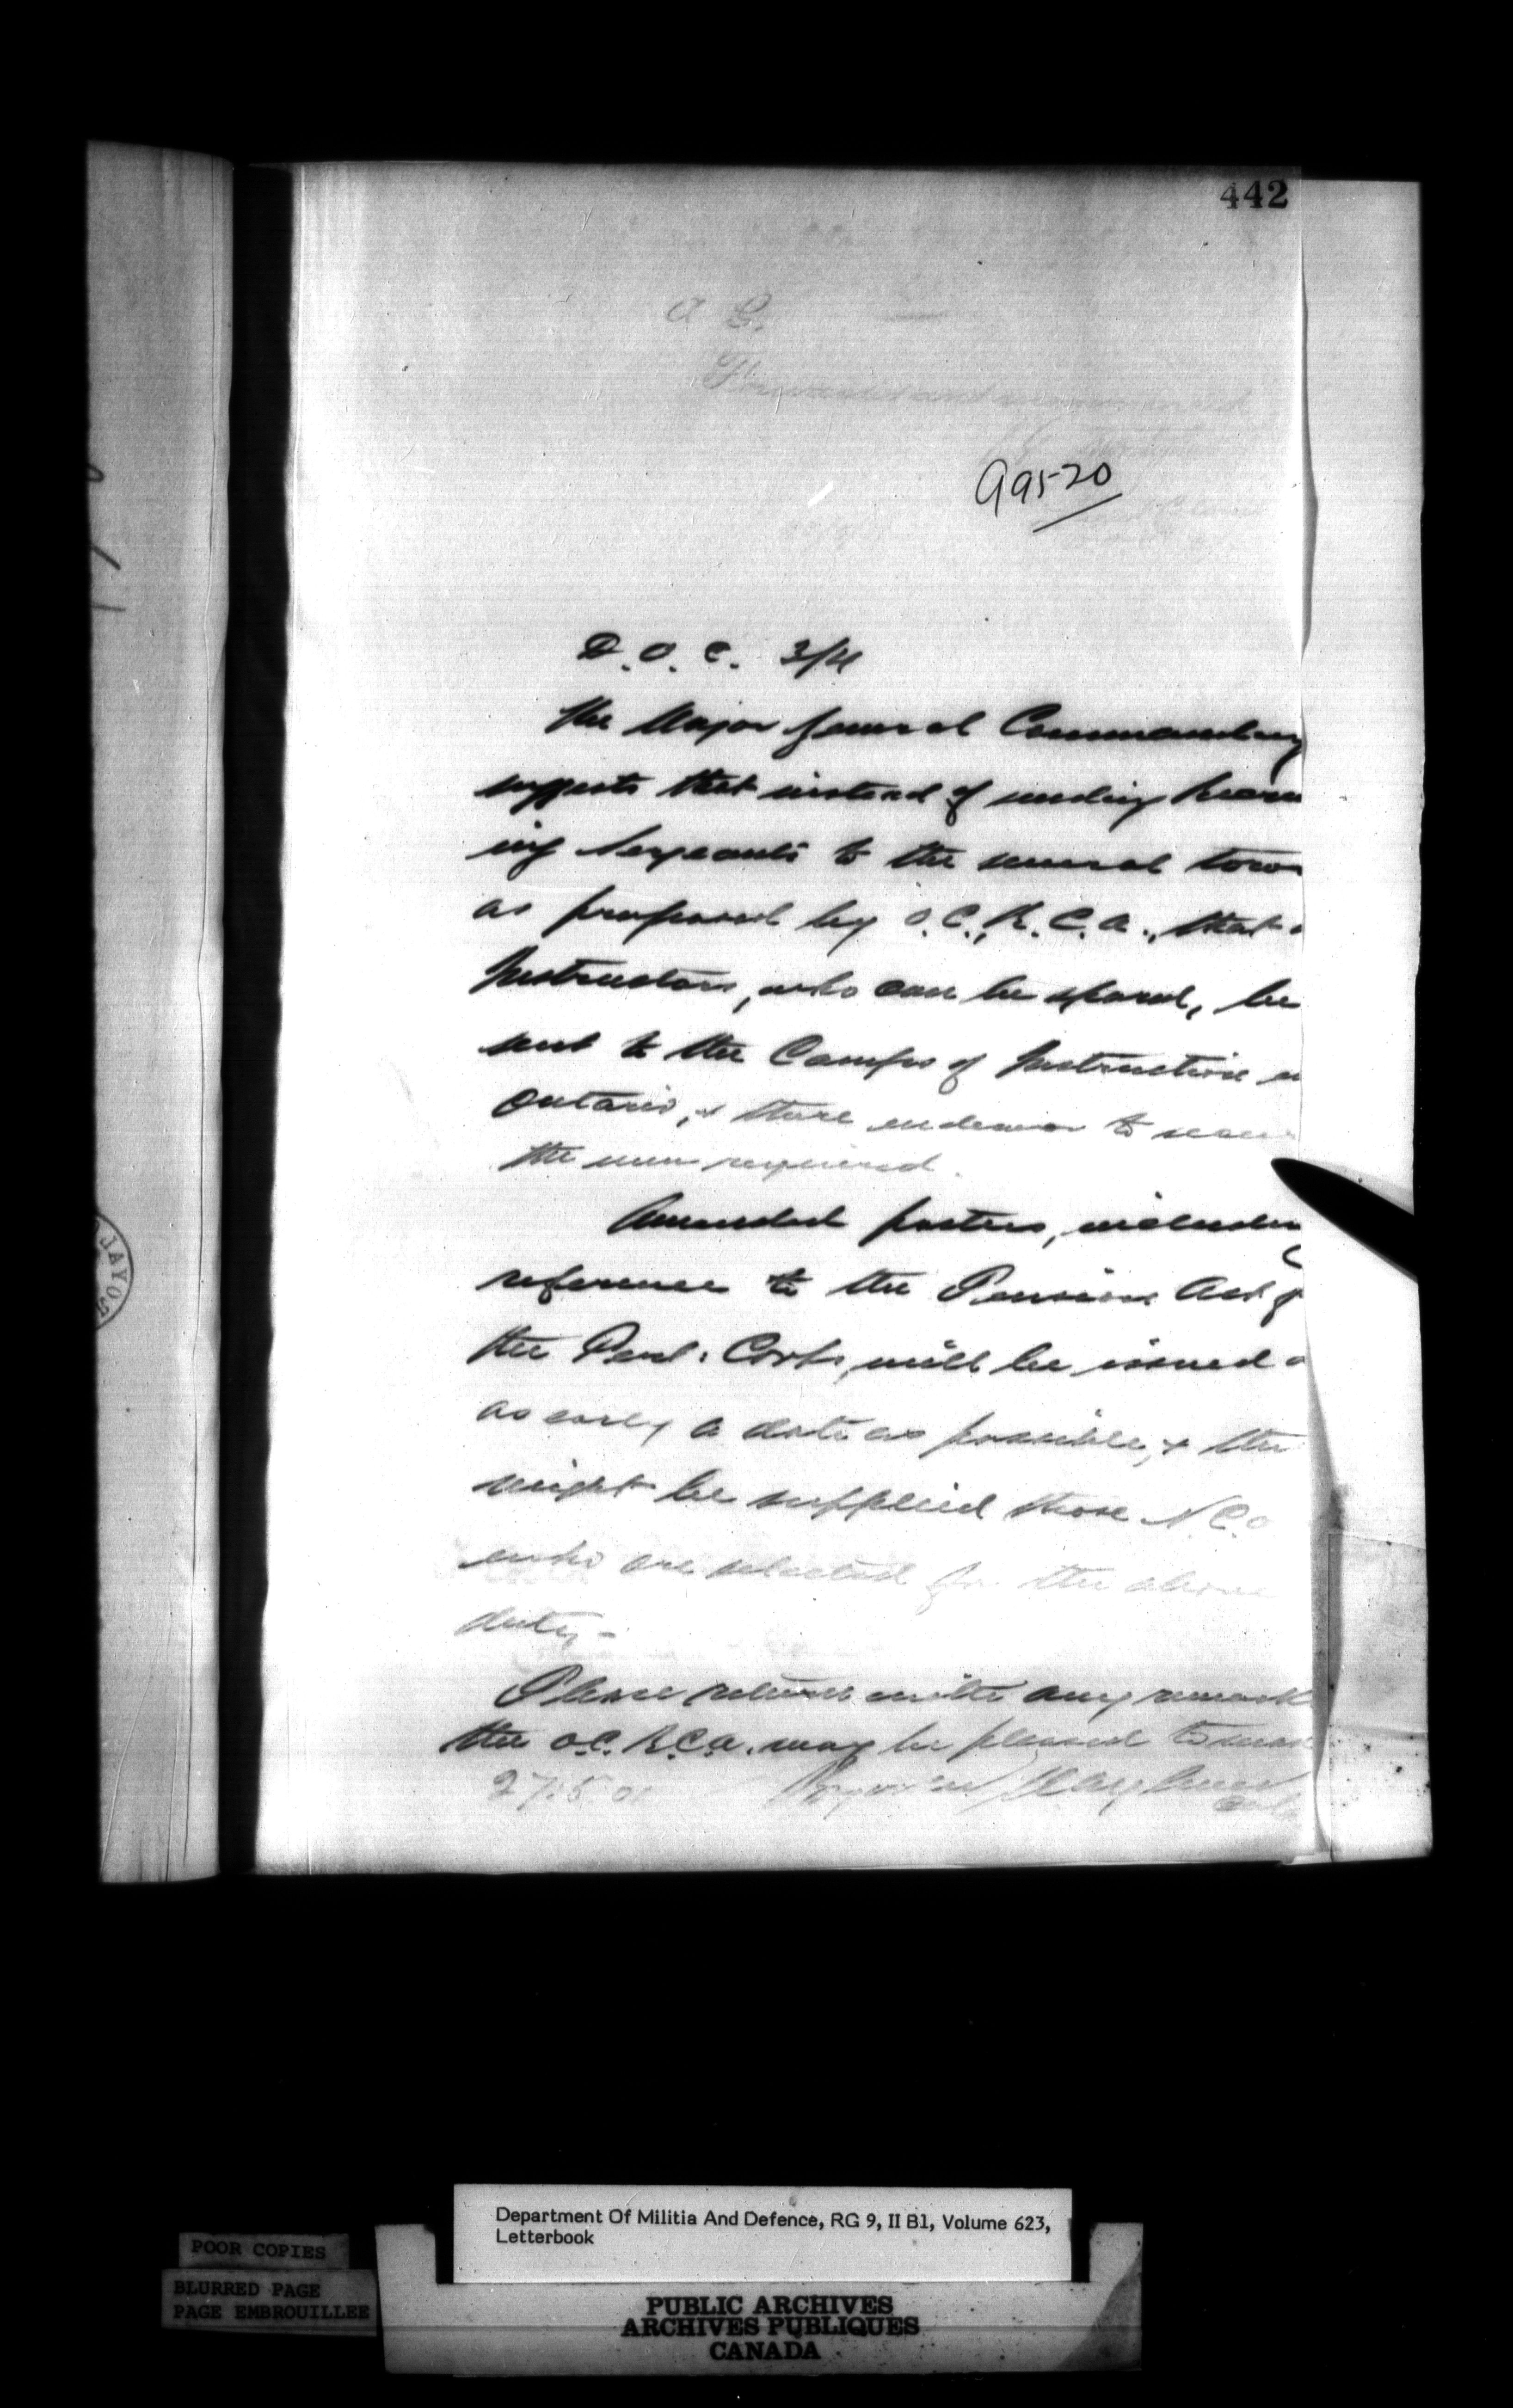 442
A G.
Forwarded and recommended
99520
D. O. C. 3/4
The Major General Commanding
suggests that instead of sending
ing Sergeants to the several town
as proposed by O.C., R.C.A., that
Instructors, who can be spared, be
sent to the Camps of Instruction
Ontario, & there endeavor to
the men required.
Amended posters, including
reference to the Pension Act
the Perm: Corps, will be issued
as early a date as possible, &
might be supplied those N.C.O
who are selected for the above
duty -
Please return with any remark
the O.C. R.C.A. may be pleased to
27.5.01
Department Of Militia And Defence, RG 9, II B1, Volume 623,
Letterbook
POOR COPIES
BLURRED PAGE
PAGE EMBROUILLEE
PUBLIC ARCHIVES
ARCHIVES PUBLIQUES
CANADA